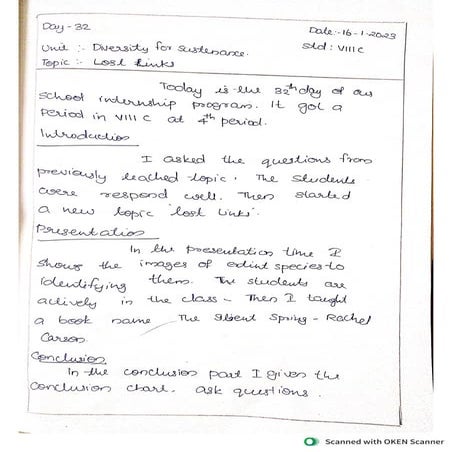 Day - 32
Date:- 16-1-2023
Unit :- Diversity for Sustenance.
Std: VIII C
Topic :- Lost Links
Today is the 32th day of our
school internship program. It got a
Period in VIII C at 4th period.
Introduction
I asked the questions from
previously teached topic. The students
were respond well. Then started
a new topic 'lost links'.
Presentation
In the presentation time I
shows the images of extint species to
identifying them. The students are
actively in the class - Then I taught
a book name The silent Spring - Rachel
Carson
Conclusion
In the conclusion part I gives the
Conclusion chart. ask questions.
Scanned with OKEN Scanner